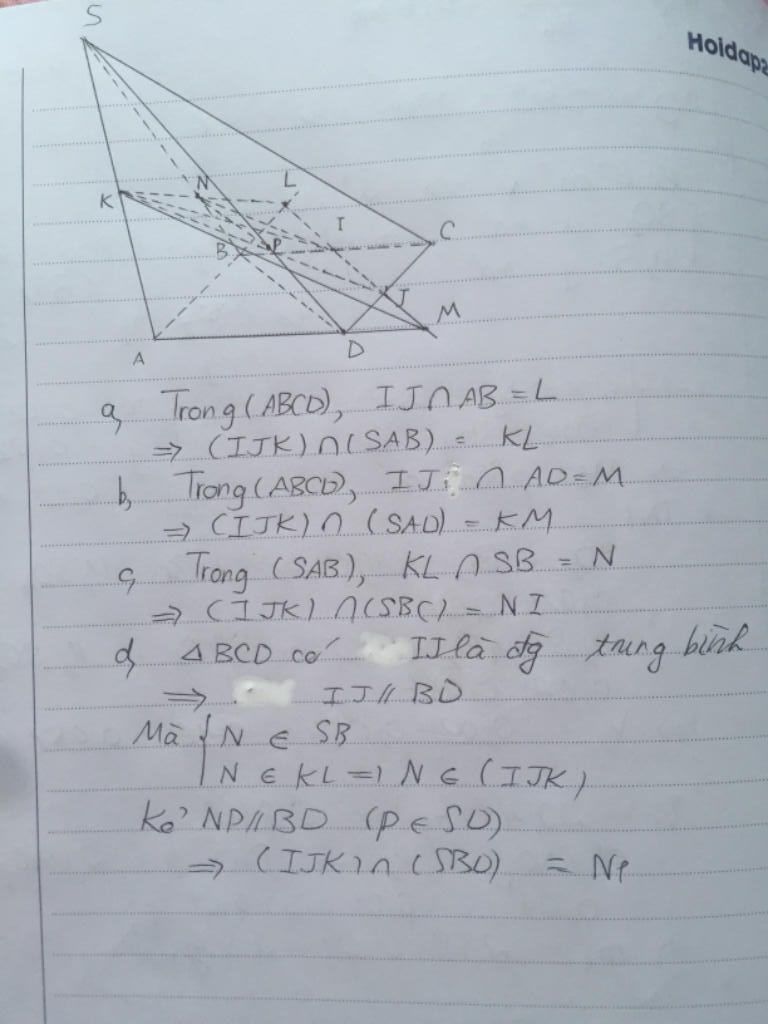 Hoidap2
S
K
N
L
I
C
B
P
J
M
A
D
a, Trong (ABCD), IJ ∩ AB = L
⇒ (IJK) ∩ (SAB) = KL
b, Trong (ABCD), IJ ∩ AD = M
⇒ (IJK) ∩ (SAD) = KM
c, Trong (SAB), KL ∩ SB = N
⇒ (IJK) ∩ (SBC) = NI
d, Δ BCD có IJ là đg trung bình
⇒ IJ // BD
Mà { N ∈ SB
N ∈ KL ⇒ N ∈ (IJK)
Kẻ NP // BD (P ∈ SD)
⇒ (IJK) ∩ (SBD) = NP